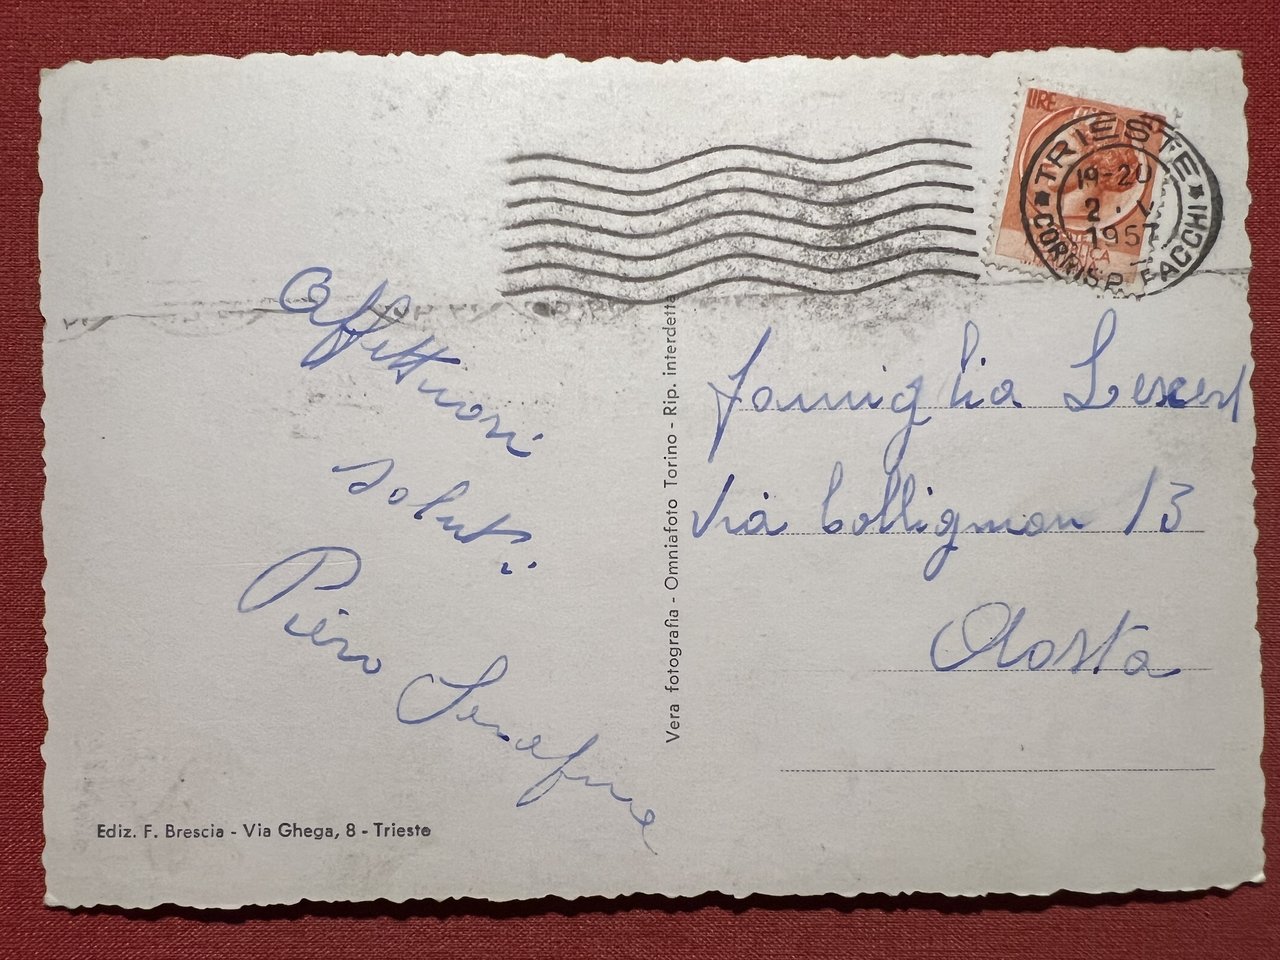 Affettuosi
saluti
Piero Serafine
Ediz. F. Brescia - Via Ghega, 8 - Trieste
Vera fotografia - Omniafoto Torino - Rip. interdetta
LIRE
TRIESTE
19-20
2
1957
CORRISP. FACCHI
famiglia
Via Collignon 13
Aosta